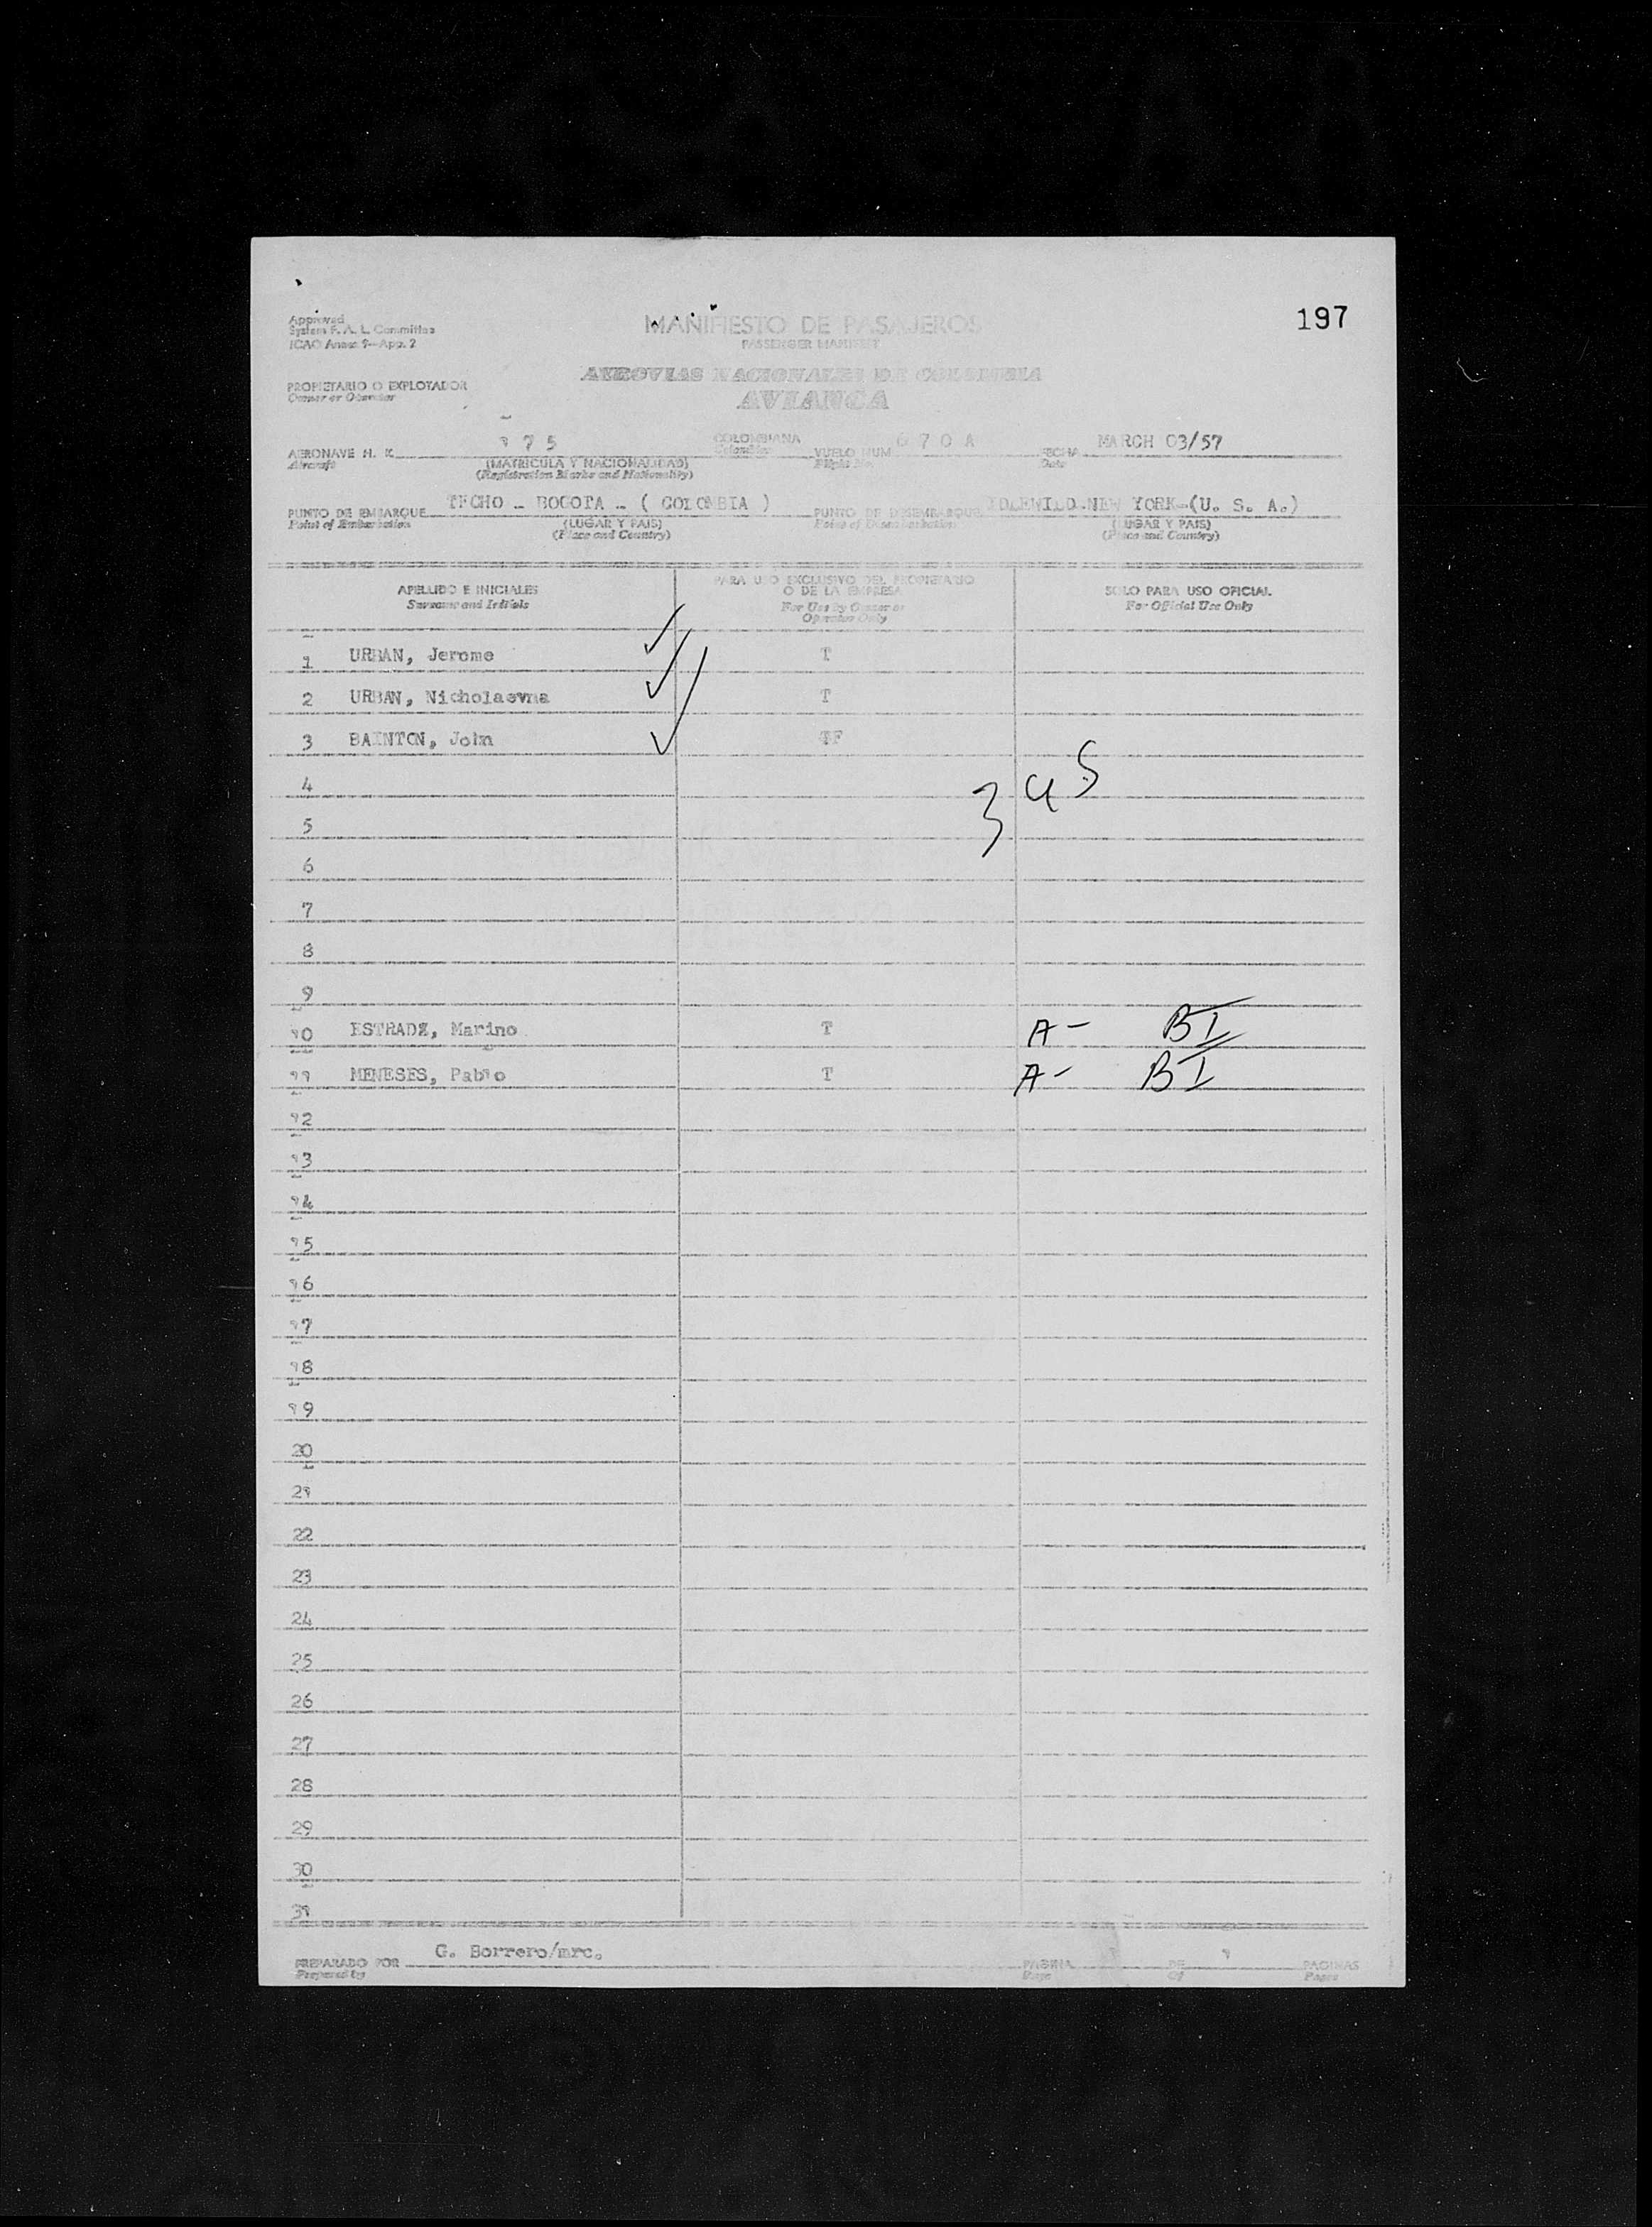 Approved
System F. A. L. Committee
ICAO Annex 9-App. 2
MANIFIESTO DE PASAJEROS
PASSENGER MANIFEST
197
AEROVIAS NACIONALES DE COLOMBIA
AVIANCA
PROPIETARIO O EXPLOTADOR
Owner or Operator
AERONAVE H. K. 175 COLOMBIANA VUELO NUM. 670 A FECHA MARCH 03/57
Aircraft Colombian Flight No. Date
(MATRICULA Y NACIONALIDAD)
(Registration Marks and Nationality)
PUNTO DE EMBARQUE TECHO - BOGOTA - ( COLOMBIA ) PUNTO DE DESEMBARQUE IDLEWILD-NEW YORK-(U. S. A.)
Point of Embarkation (LUGAR Y PAIS) Point of Disembarkation (LUGAR Y PAIS)
(Place and Country) (Place and Country)
APELLIDO E INICIALES PARA USO EXCLUSIVO DEL PROPIETARIO SOLO PARA USO OFICIAL
Surname and Initials O DE LA EMPRESA For Official Use Only
For Use by Owner or
Operator Only
1 URBAN, Jerome T
2 URBAN, Nicholaevna T
3 BAINTON, John TF
3 US
4
5
6
7
8
9
10 ESTRADZ, Marino T A- BI
11 MENESES, Pablo T A- BI
12
13
14
15
16
17
18
19
20
21
22
23
24
25
26
27
28
29
30
31
PREPARADO POR G. Borrero/mrc. PAGINA DE 1 PAGINAS
Prepared by Page Of Pages